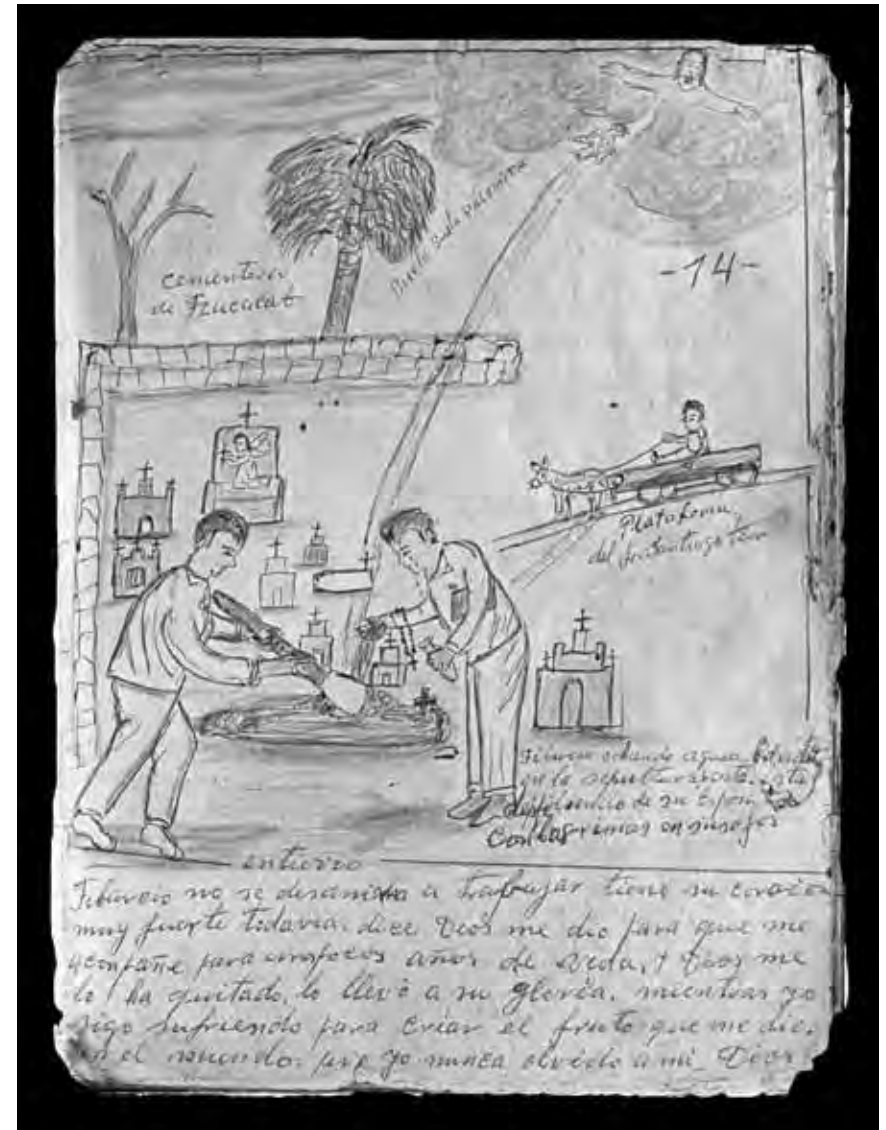 -14-
Vuela Vuela palomita
cementerio
de Tzucacab
Plataforma
del
Tiburcio echando agua bendita
en la sepultura
despidiendo de su esposa
Con lagrimas en sus ojos
entierro
Tiburcio no se desanima a trabajar tiene su corazon
muy fuerte todavia. dice Dios me dio para que me
acompañe para unos pocos años de vida, y Dios me
lo ha quitado, lo llevó a su gloria. mientras yo
sigo sufriendo para criar el fruto que me dio.
en el mundo. pero yo nunca olvido a mi Dios